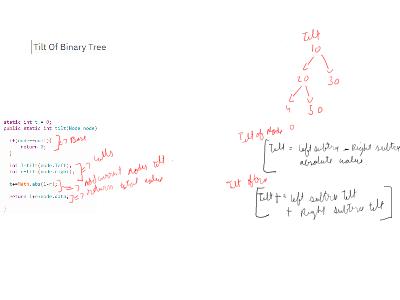 Tilt Of Binary Tree
static int t = 0;
public static int tilt(Node node)
if(node==null){
return 0;
}
=> Base
int l=tilt(node.left);
int r=tilt(node.right);
=> calls
t+=Math.abs(l-r);
=> Add current nodes tilt
return l+r+node.data;
=> returns total value
}
Tilt
10
20 30
4 50
Tilt of Node
0
Tilt = left subtree - Right subtree
absolute value
Tilt of tree
Tilt += left subtree tilt
+ Right subtree tilt